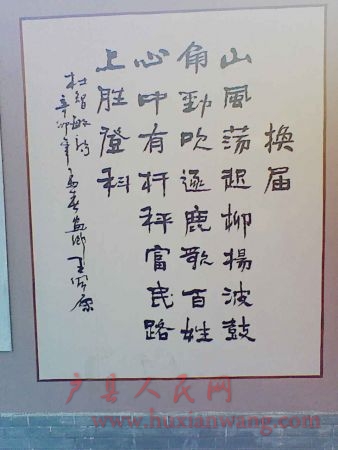 换届
山風荡起柳揚波鼓
角勁吹逐鹿歌百姓
心中有杆秤富民路
上胜登科
杜智敏诗
辛卯年
户县人民网
www.huxianwang.com